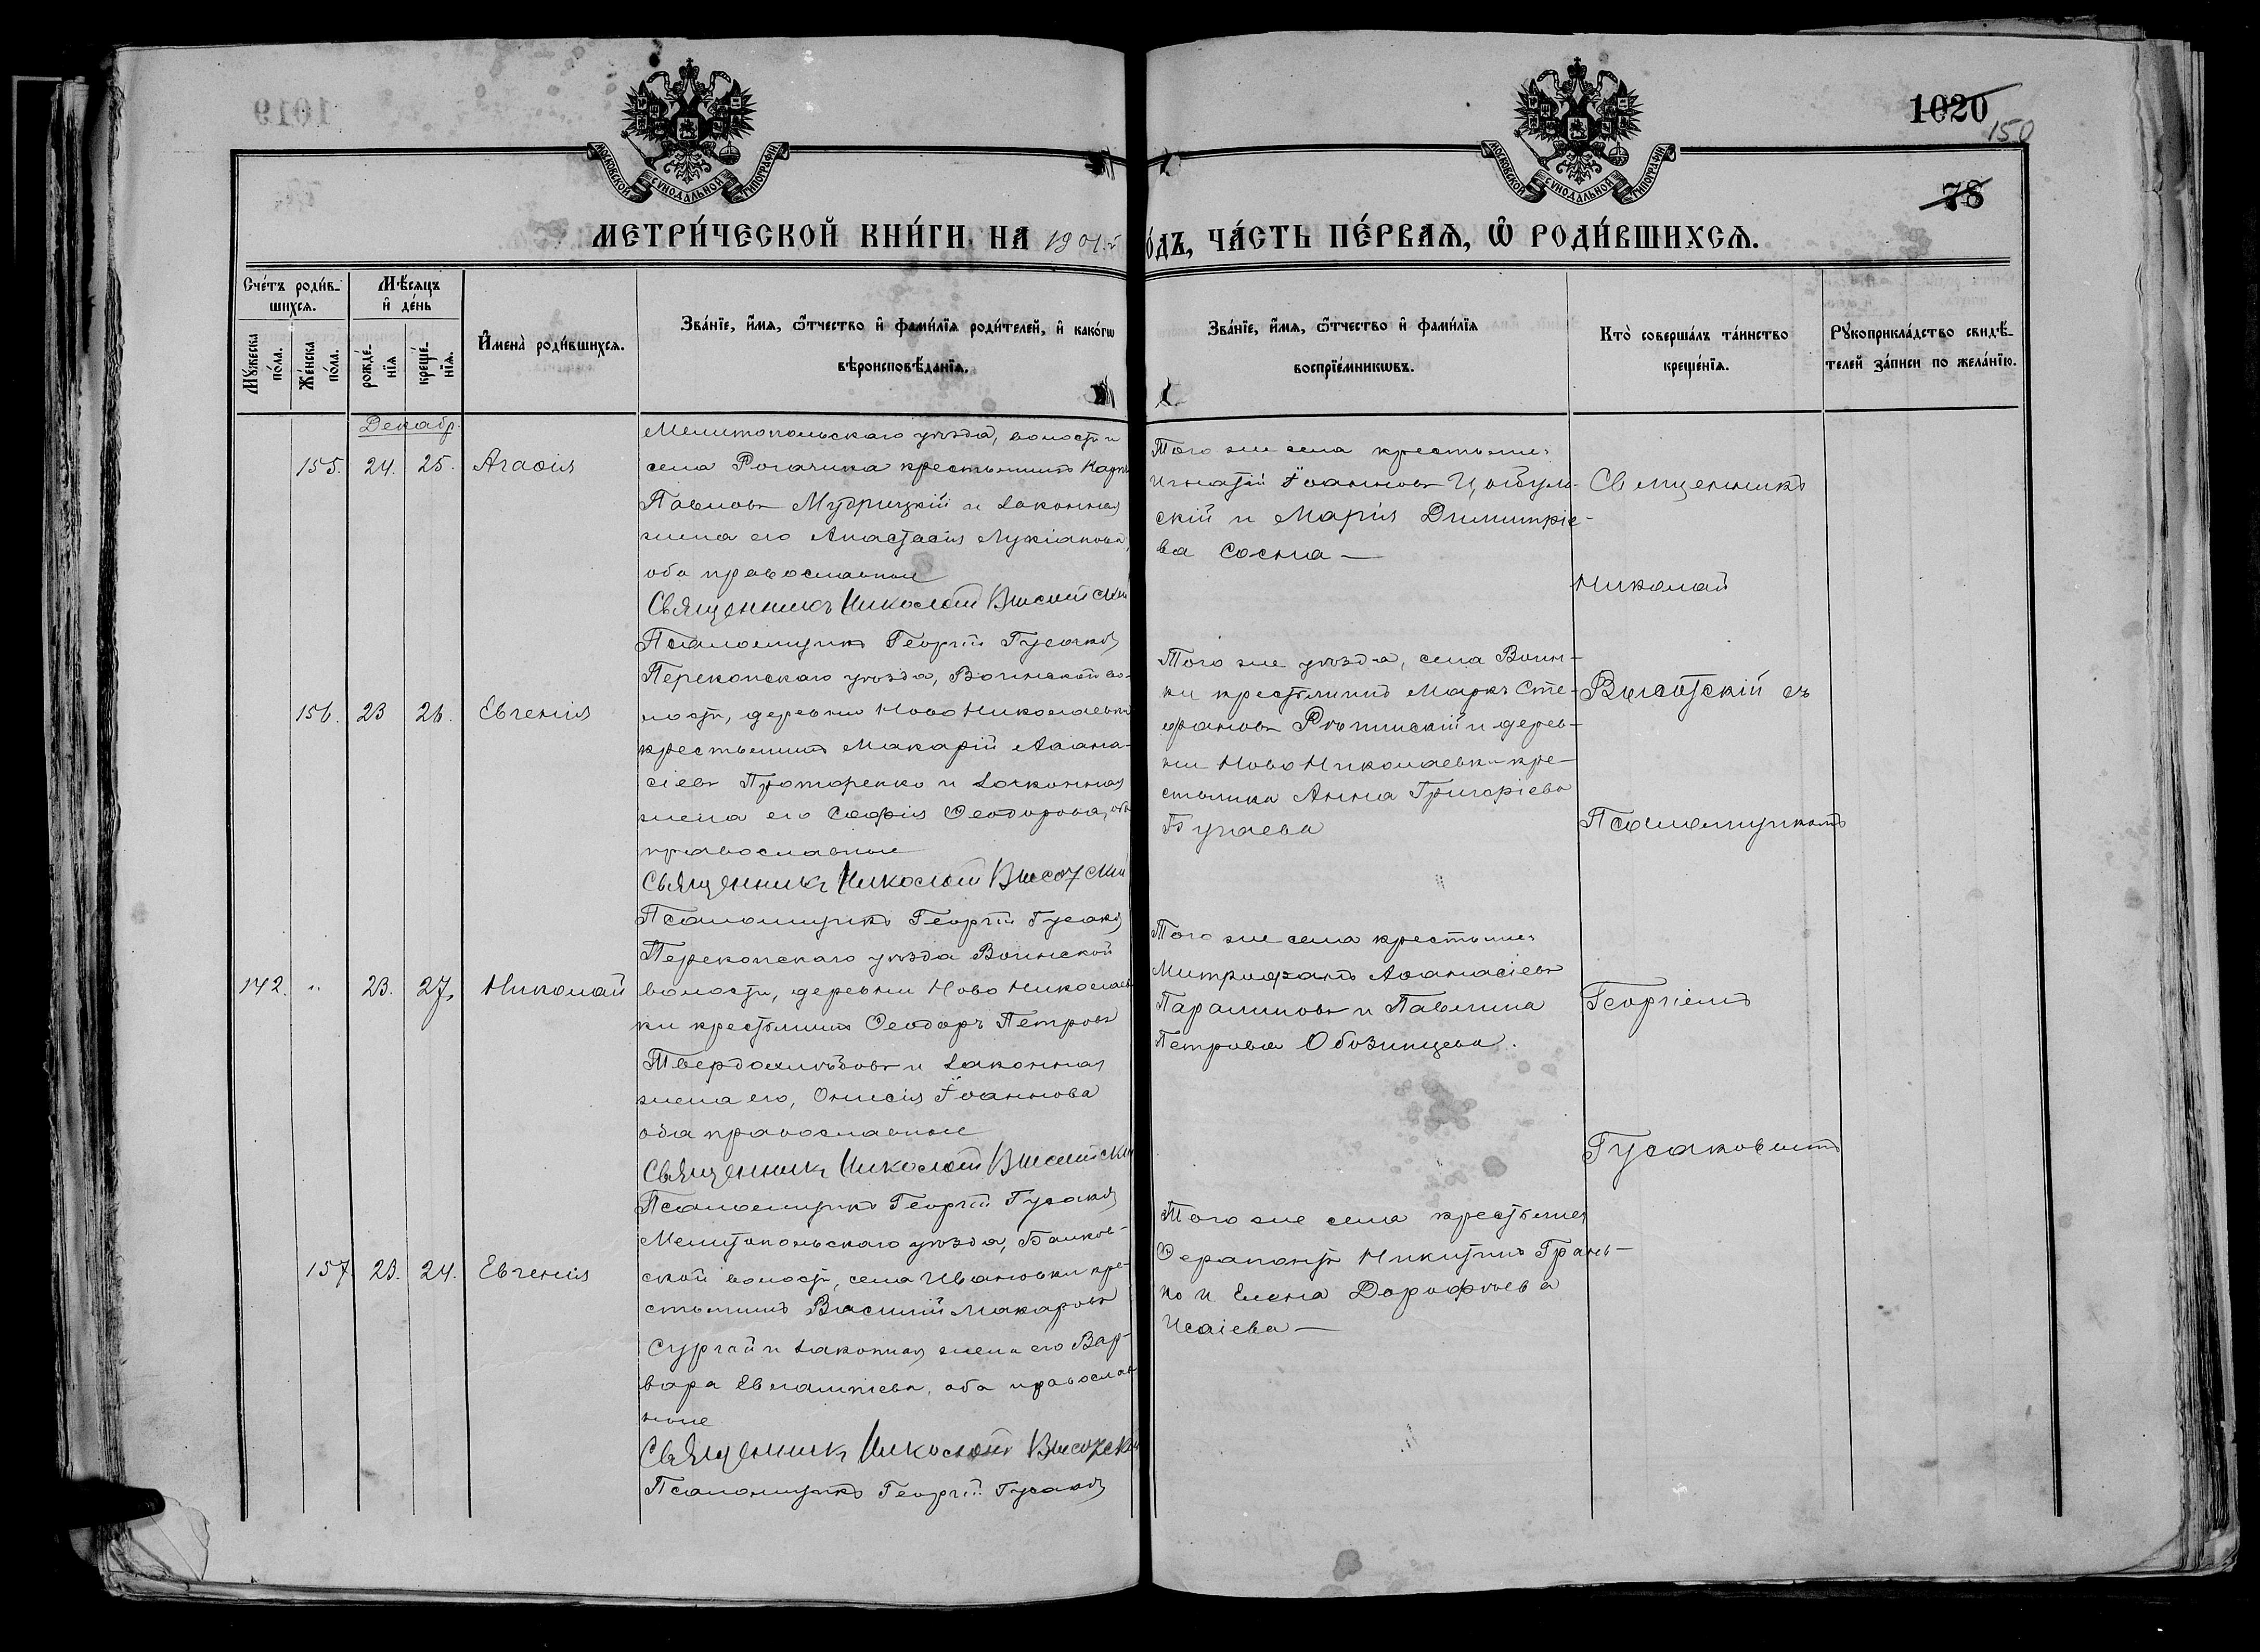 1020
150
78
МОСКОВСКОЙ СѴНОДАЛЬНОЙ ТИПОГРАФІИ
МОСКОВСКОЙ СѴНОДАЛЬНОЙ ТИПОГРАФІИ
МЕТРИ́ЧЕСКОЙ КНИ́ГИ НА 1901 г
О́ДЪ, ЧА́СТЬ ПЕ́РВАѦ, Ѡ҆ РОДИ́ВШИХСѦ.
Сче́тъ роди́в-
шихсѧ.
Мꙋ́жеска по́ла.
Же́нска по́ла.
Мѣ́сѧцъ
и҆ де́нь
рожде́-
нїѧ
креще́-
нїѧ.
И҆мена̀ роди́вшихсѧ.
Зва́нїе, и҆́мѧ, ѻ҆́тчество и҆ фами́лїѧ роди́телей, и҆ како́гѡ
вѣроисповѣ́данїѧ.
Зва́нїе, и҆́мѧ, ѻ҆́тчество и҆ фами́лїѧ
воспрїе́мникѡвъ.
Кто̀ соверша́лъ та́инство
креще́нїѧ.
Рꙋкоприкла́дство свидѣ́-
телей за́писи по жела́нїю.
Декабр.
155. 24. 25. Агафія
Мелитопольскаго уѣзда, волости и
села Рогачика крестьянинъ
Павловъ Мудрицкій и законная
жена его Анастасія Лукіанова,
оба православные
Священникъ Николай Высотскій
Псаломщикъ Георгій Гусаковъ
Того же села крестьяне
Игнатій Іоанновъ Цыбуль-
скій и Марія Димитріе-
ва Сосна —
156. 23 26. Евгенія
Перекопскаго уѣзда, Воинской во-
лости, деревни Ново Николаевки
крестьянинъ Макарій Аѳана-
сіевъ Протаренко и законная
жена его Софія Ѳеодорова, оба
православные
Священникъ Николай Высотскій
Псаломщикъ Георгій Гусаковъ
Того же уѣзда, села Воин-
ки крестьянинъ Маркъ Сте-
фановъ Рѣпинскій и дерев-
ни Ново Николаевки кре-
стьянка Анна Григоріева
Бугаева
142. " 23. 27. Николай
Перекопскаго уѣзда Воинской
волости, деревни Ново Николаев
ки крестьянинъ Ѳеодоръ Петровъ
Твердохлѣбовъ и законная
жена его, Онисія Іоаннова
оба православные
Священникъ Николай Высотскій
Псаломщикъ Георгій Гусаковъ
Того же села крестьяне
Митрофанъ Аѳанасіевъ
Парамоновъ и Павлина
Петрова Обозинцева.
157. 23. 24. Евгенія
Мелитопольскаго уѣзда, Балков-
ской волости, села Ивановки кре-
стьянинъ Василій Макаровъ
Сургай и законная жена его Вар-
вара Евлампіева, оба православ
ные
Священникъ Николай Высотскій
Псаломщикъ Георгій Гусаковъ
Того же села крестьяне
Ѳерапонтъ Никитинъ Грань-
ко и Елена Дорофѣева
Исаіева —
Священникъ
Николай
Высотскій съ
Псаломщикомъ
Георгіемъ
Гусаковымъ